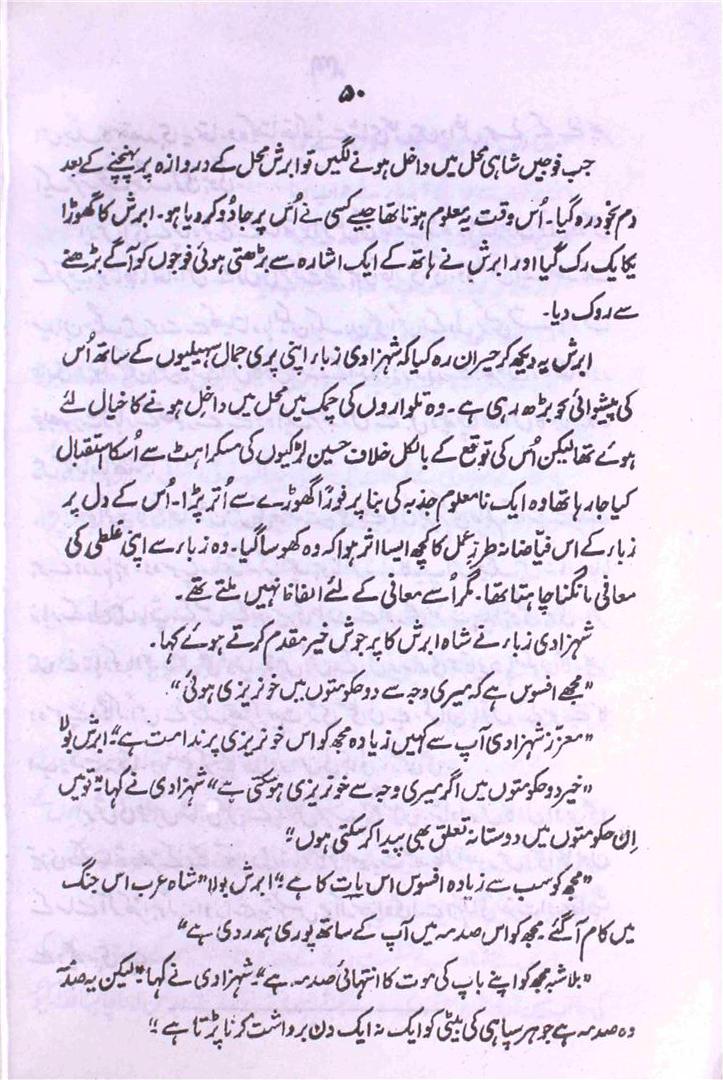 ۵۰
جب فوجیں شاہی محل میں داخل ہونے لگیں تو ابرش محل کے دروازہ پر پہنچنے کے بعد
دم بخود رہ گیا۔ اُس وقت یہ معلوم ہوتا تھا جیسے کسی نے اُس پر جادُو کر دیا ہو۔ ابرش کا گھوڑا
یکایک رک گیا اور ابرش نے ہاتھ کے ایک اشارہ سے بڑھتی ہوئی فوجوں کو آگے بڑھنے
سے روک دیا۔
ابرش یہ دیکھ کر حیران رہ گیا کہ شہزادی زباء اپنی پری جمال سہیلیوں کے ساتھ اُس
کی پیشوائی کو بڑھ رہی ہے۔ وہ تلواروں کی چمک میں محل میں داخل ہونے کا خیال لئے
ہوئے تھا لیکن اُس کی توقع کے بالکل خلاف حسین لڑکیوں کی مسکراہٹ سے اُسکا استقبال
کیا جا رہا تھا وہ ایک نامعلوم جذبہ کی بنا پر فوراً گھوڑے سے اُتر پڑا۔ اُس کے دل پر
زباء کے اس فیاضانہ طرزِ عمل کا کچھ ایسا اثر ہوا کہ وہ کھو سا گیا۔ وہ زباء سے اپنی غلطی کی
معافی مانگنا چاہتا تھا۔ مگر اُسے معافی کے لئے الفاظ نہیں ملتے تھے۔
شہزادی زباء نے شاہ ابرش کا پرجوش خیر مقدم کرتے ہوئے کہا۔
"مجھے افسوس ہے کہ میری وجہ سے دو حکومتوں میں خونریزی ہوئی"۔
"معزّز شہزادی آپ سے کہیں زیادہ مجھ کو اس خونریزی پر ندامت ہے" ابرش بولا
"خیر دو حکومتوں میں اگر میری وجہ سے خونریزی ہو سکتی ہے" شہزادی نے کہا "تو میں
اِن حکومتوں میں دوستانہ تعلق بھی پیدا کر سکتی ہوں"
"مجھ کو سب سے زیادہ افسوس اس بات کا ہے" ابرش بولا "شاہ عرب اس جنگ
میں کام آ گئے مجھ کو اس صدمہ میں آپ کے ساتھ پوری ہمدردی ہے"
"بلاشبہ مجھ کو اپنے باپ کی موت کا انتہائی صدمہ ہے" شہزادی نے کہا "لیکن یہ صدمہ
وہ صدمہ ہے جو ہر سپاہی کی بیٹی کو ایک نہ ایک دن برداشت کرنا پڑتا ہے"